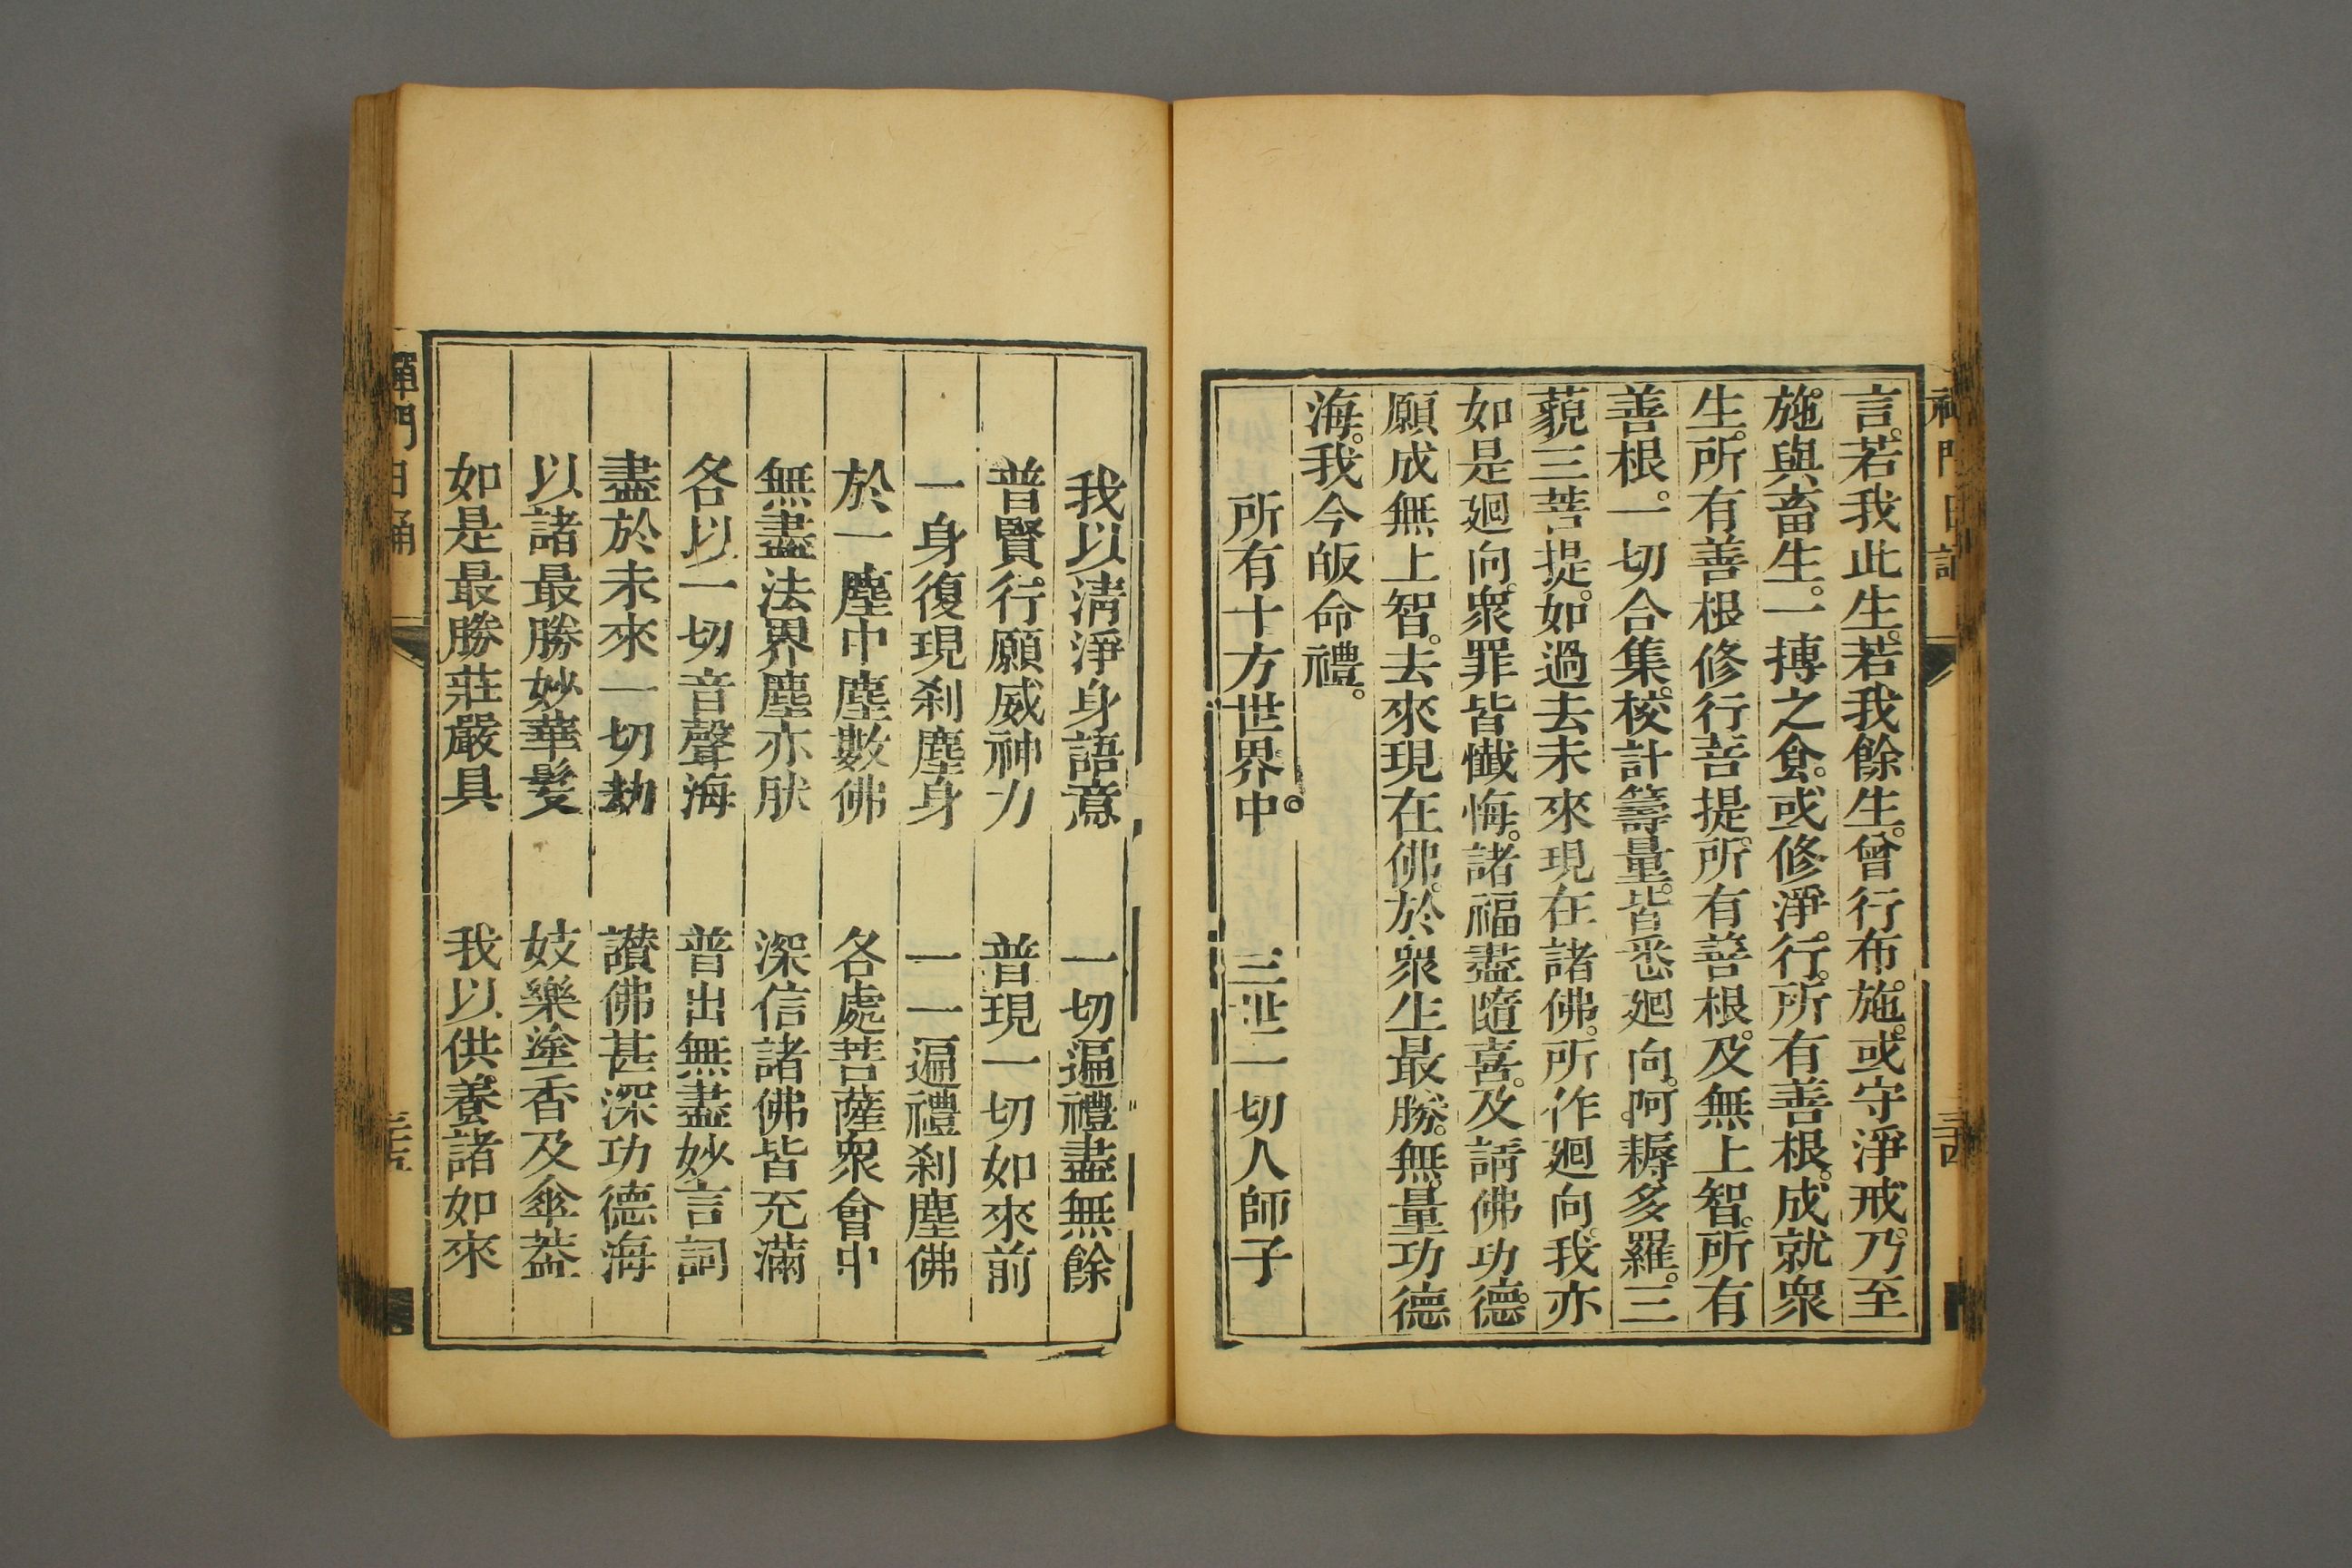 言。若我此生。若我餘生。曾行布施。或守淨戒。乃至
施與畜生。一摶之食。或修淨行。所有善根。成就衆
生。所有善根。修行菩提。所有善根。及無上智。所有
善根。一切合集。校計籌量。皆悉廻向。阿耨多羅。三
藐三菩提。如過去未來現在諸佛。所作廻向。我亦
如是廻向。衆罪皆懺悔。諸福盡隨喜。及請佛功德。
願成無上智。去來現在佛。於衆生最勝。無量功德
海。我今皈命禮。
所有十方世界中。 三世一切人師子
三十四
我以淸淨身語意 一切遍禮盡無餘
普賢行願威神力 普現一切如來前
一身復現刹塵身 一一遍禮刹塵佛
於一塵中塵數佛 各處菩薩衆會中
無盡法界塵亦肰 深信諸佛皆充滿
各以一切音聲海 普出無盡妙言詞
盡於未來一切劫 讃佛甚深功德海
以諸最勝妙華鬘 妓樂塗香及傘葢
如是最勝莊嚴具 我以供養諸如來
禪門日誦
三十五